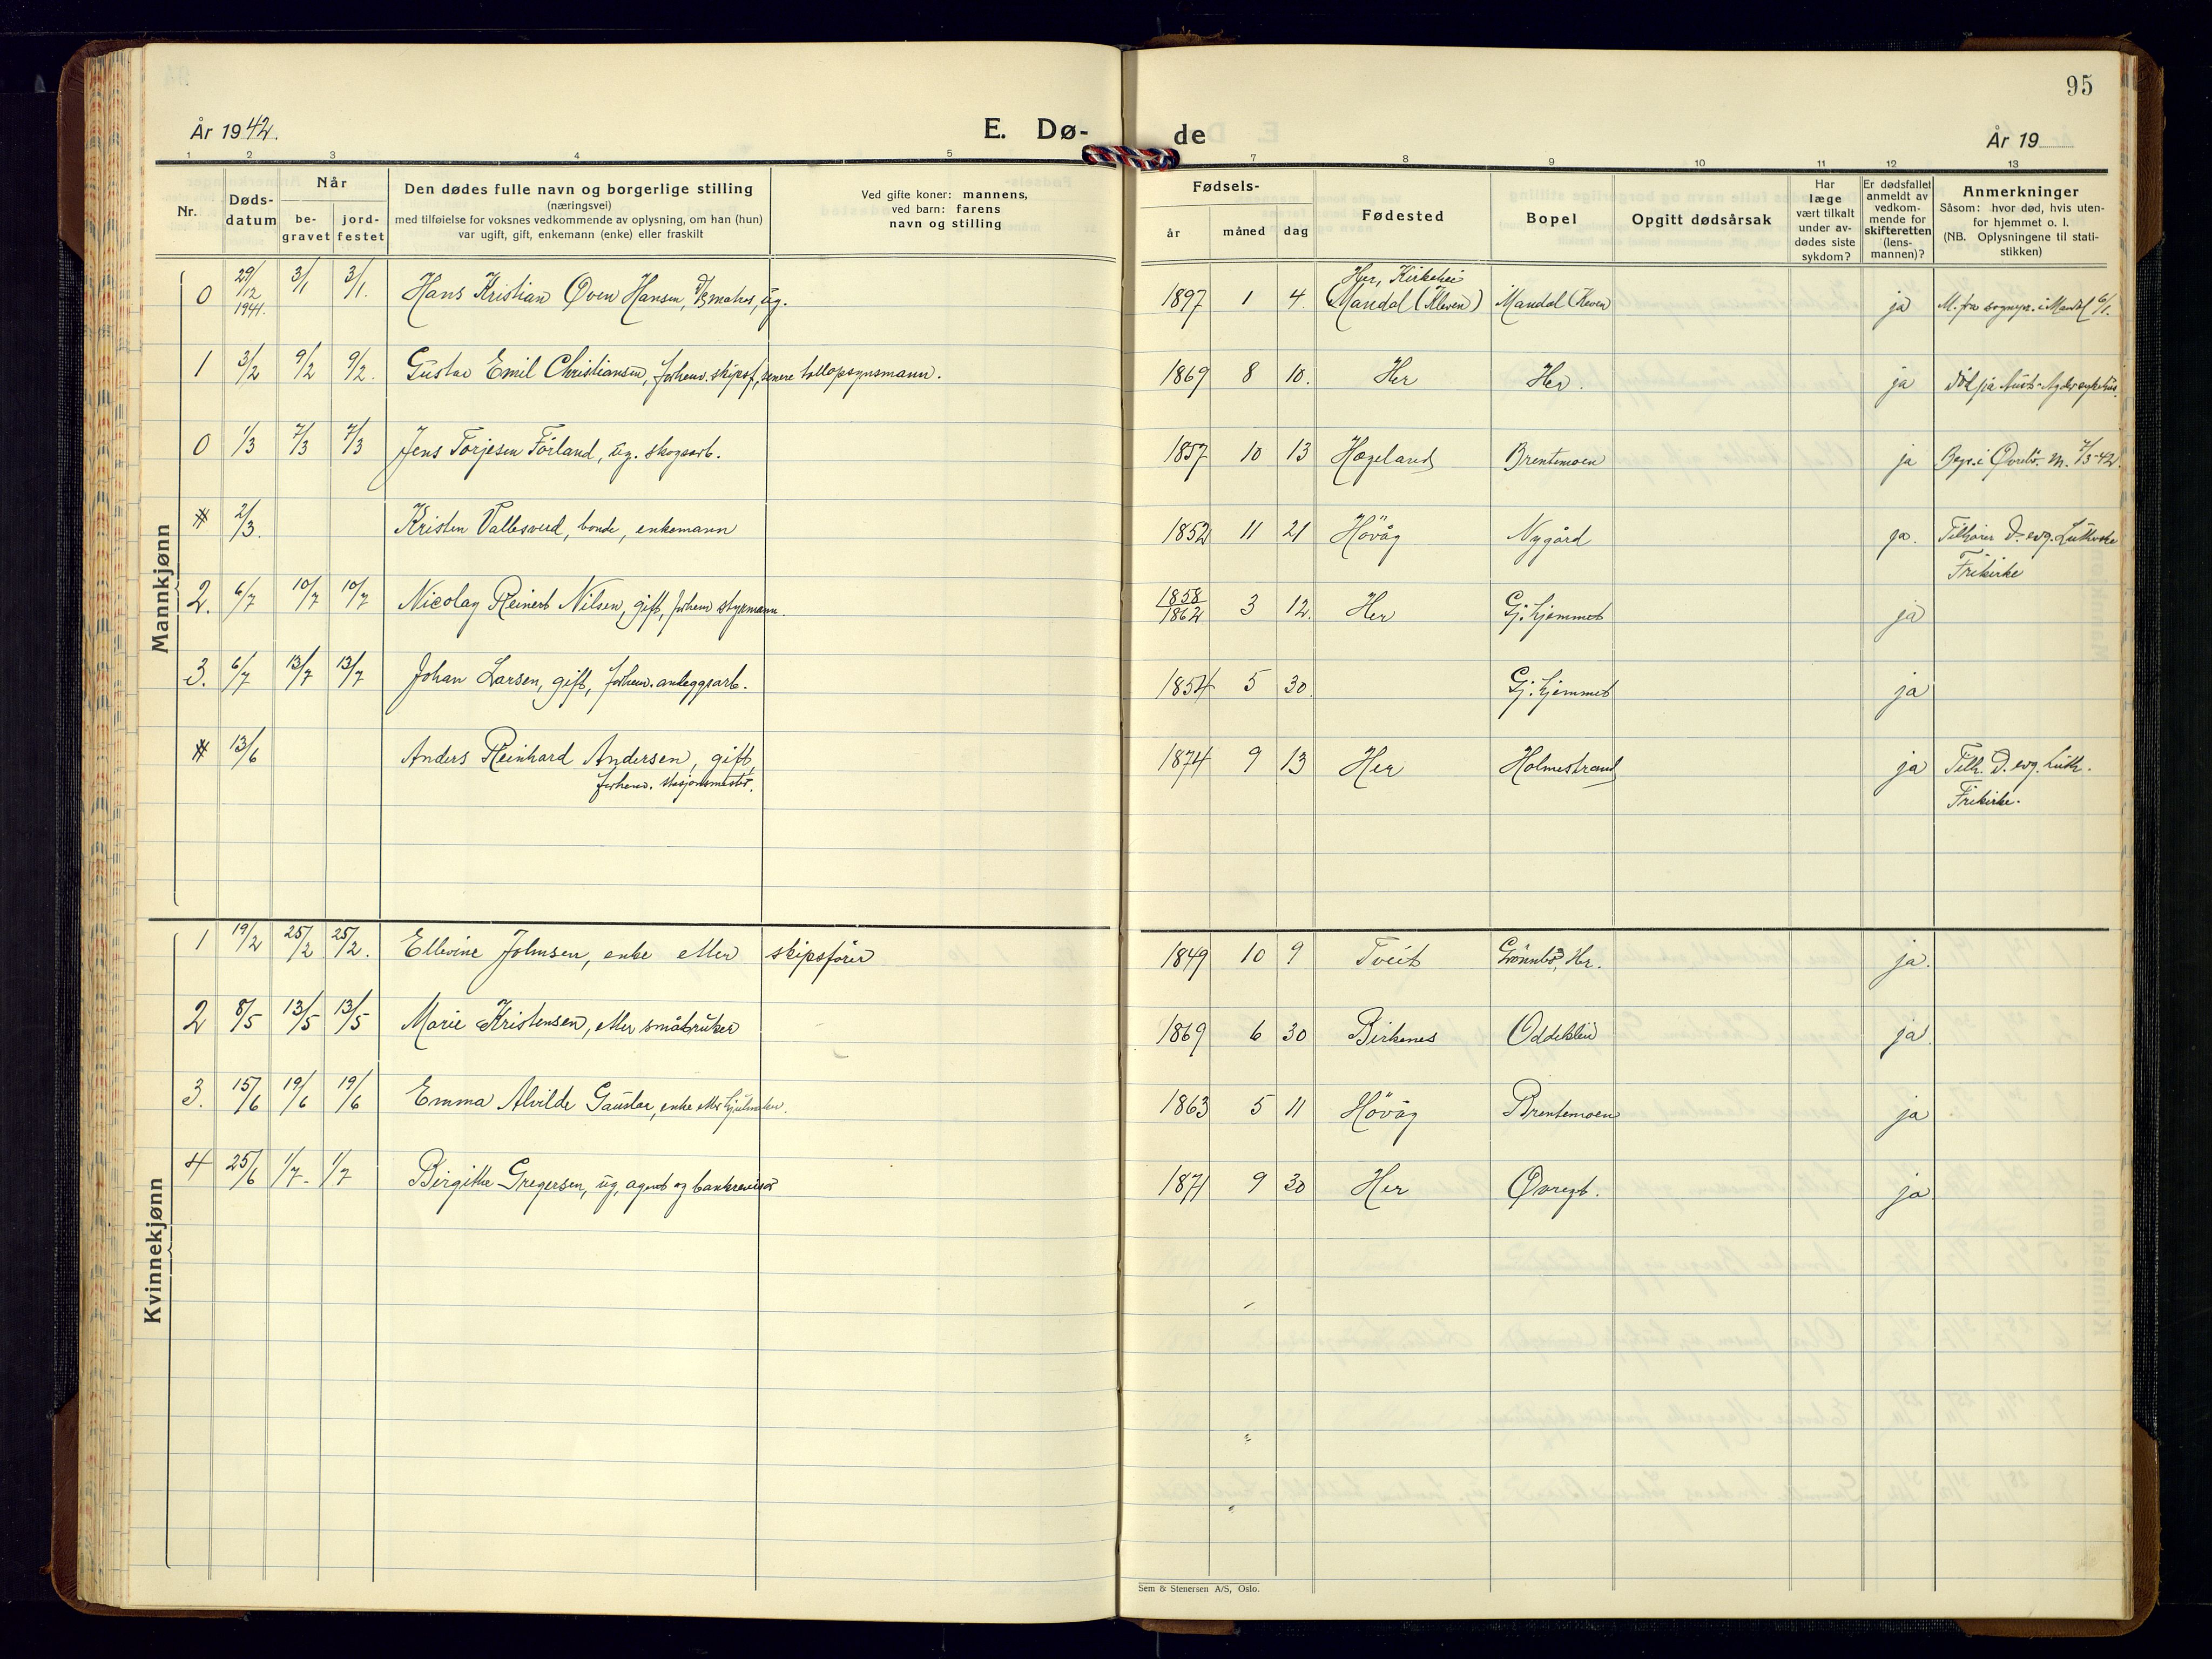 95
År 1942.
E. Dø-
de
År 19
1 2 3 4 5 7 8 9 10 11 12 13
Nr.
Døds-
datum
Når
be-
gravet
jord-
festet
Den dødes fulle navn og borgerlige stilling
(næringsvei)
med tilføielse for voksnes vedkommende av oplysning, om han (hun)
var ugift, gift, enkemann (enke) eller fraskilt
Ved gifte koner: mannens,
ved barn: farens
navn og stilling
Fødsels-
år
måned
dag
Fødested
Bopel
Opgitt dødsårsak
Har
læge
vært tilkalt
under av-
dødes siste
sykdom?
Er dødsfallet
anmeldt av
vedkom-
mende for
skifteretten
(lens-
mannen)?
Anmerkninger
Såsom: hvor død, hvis uten-
for hjemmet o. l.
(NB. Oplysningene til stati-
stikken)
Mannkjønn
0 29/12 1941. 3/1 3/1. Hans Kristian Øven Hansen, matros, ug. 1897 1 4. Her, Kirkehei Mandal (Kleven) Mandal (Kleven ja M. fra sognepr. i Mandal 6/1.
1 3/2 9/2 9/2. Gustav Emil Christiansen, forhenv. skipsf, senere tollopsynsmann. 1869 8 10. Her Her. ja død på Aust-Agder sykehus.
0 1/3 7/3 7/3 Jens Torjesen Förland, ug. skogsarb. 1857 10 13 Hægeland Brentemoen ja Begr. i Øvrebö. M. 7/3-42.
# 2/3. Kristen Vallesverd, bonde, enkemann 1852 11 21 Hövåg Nygård ja. Tilhörer D. evg. Lutherske
Frikirke
2. 6/7 10/7 10/7 Nicolay Reinert Nilsen, gift, forhenv styrmann. 1858/1862 3 12. Her Gj.hjemmet ja
3. 6/7 13/7 13/7 Johan Larsen, gift, forhenv. anleggsarb. 1854 5 30. Gj.hjemmet ja
# 13/6 Anders Reinhard Andersen, gift, 1874 9 13 Her Holmestrand ja Tilh. D. evg. Luth.
forhenv. stasjonsmester. Frikirke.
Kvinnekjønn
1 19/2 25/2 25/2. Ellevine Johnsen, enke etter skipsförer 1849 10 9 Tveit Grönnbö, Her. ja.
2 8/5 13/5 13/5 Marie Kristensen, etter småbruker 1869 6 30 Birkenes Oddeklein ja
3. 15/6 19/6 19/6 Emma Alvilde Gaustac, enke etter hjulmaker. 1863 5 11 Hövåg Brentemoen ja
4 25/6 1/7- 1/7 Birgitte Gregersen, ug, agent og bankrevisor 1871 9 30 Her Øvregt. ja
Sem & Stenersen A/S, Oslo.